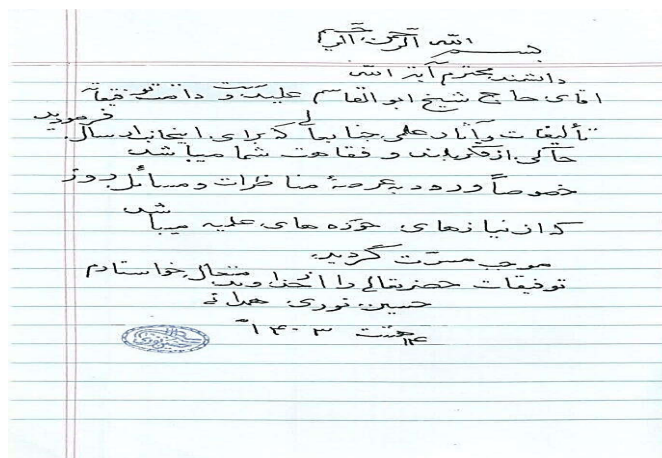 بسم الله الرحمن الرحیم
دانشمند محترم آیة الله
اقای حاج شیخ ابوالقاسم علیدوست دامت توفیقاته
تألیفات وآثار علمی جنابعالی که برای اینجانب ارسال فرمودید
حاکی از فکر بلند و فقاهت شما میباشد
خصوصاً ورود به عرصهٔ مناظرات ومسائل روز
که از نیازهای حوزه های علمیه میباشد
موجب مسرّت گردید
توفیقات حضرتعالی را از خداوند متعال خواستارم
حسین نوری همدانی
۱۴۰۳